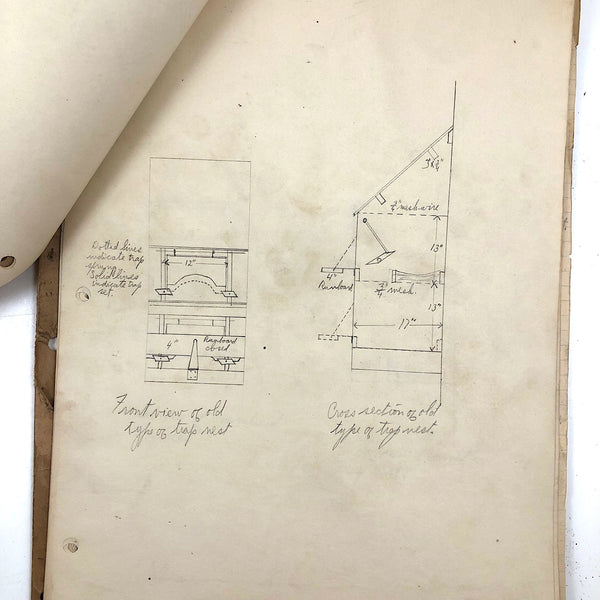 Dotted lines
indicate trap
sprung
Solid lines
indicate trap
set.
12"
4"
Runboard
closed
Front view of old
type of trap nest
¾" mesh wire
13"
4"
Runboard
mesh.
13"
17"
Cross section of old
type of trap nest.